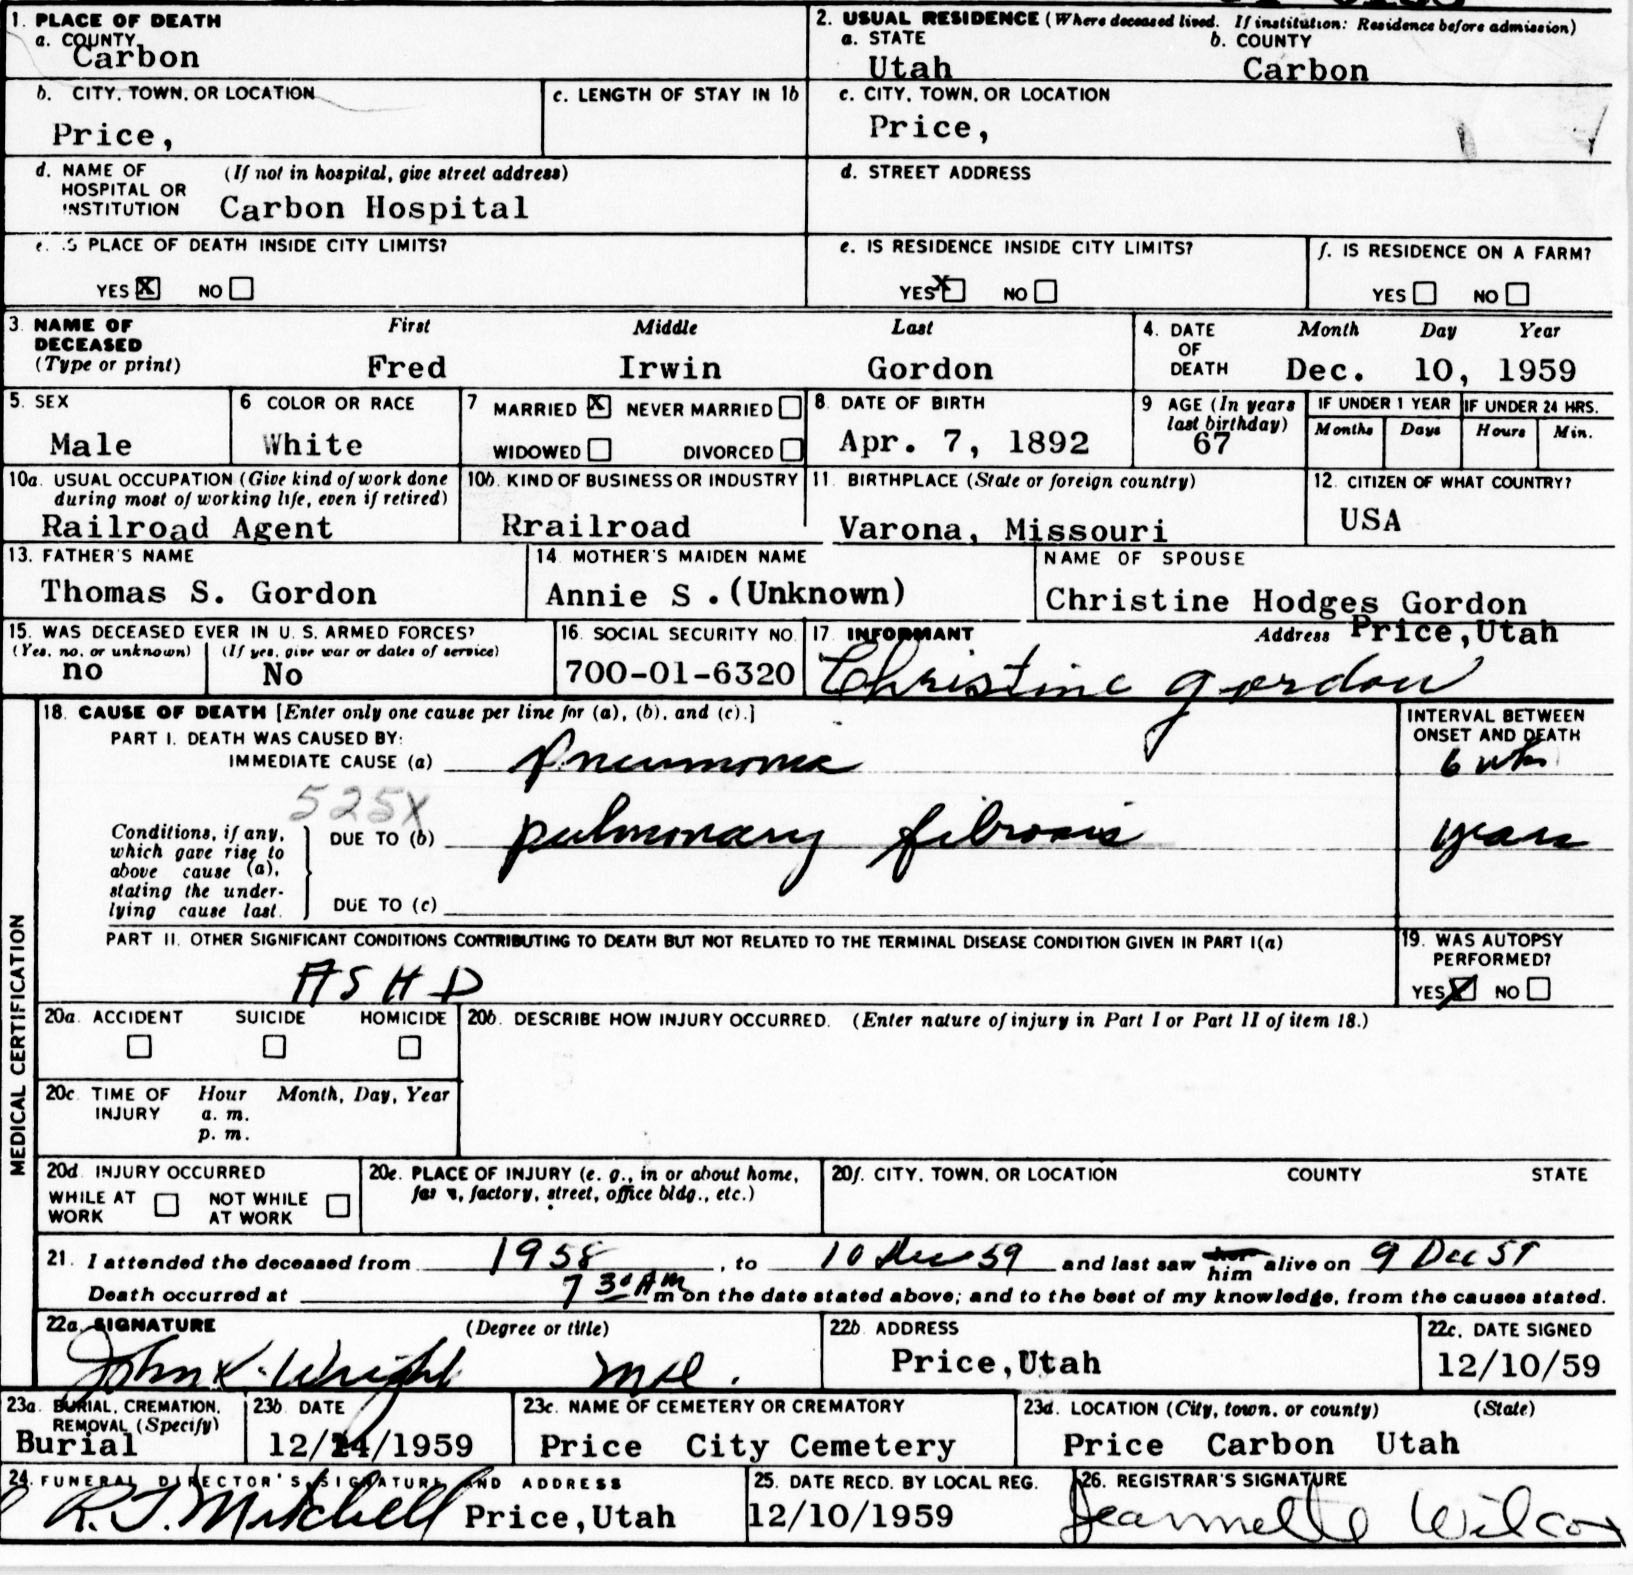 1. PLACE OF DEATH
a. COUNTY
Carbon
2. USUAL RESIDENCE (Where deceased lived. If institution: Residence before admission)
a. STATE b. COUNTY
Utah Carbon
b. CITY, TOWN, OR LOCATION
Price,
c. LENGTH OF STAY IN 1b
c. CITY, TOWN, OR LOCATION
Price,
d. NAME OF HOSPITAL OR INSTITUTION (If not in hospital, give street address)
Carbon Hospital
d. STREET ADDRESS
e. IS PLACE OF DEATH INSIDE CITY LIMITS?
YES X NO
e. IS RESIDENCE INSIDE CITY LIMITS?
YES X NO
f. IS RESIDENCE ON A FARM?
YES NO
3. NAME OF DECEASED (Type or print)
First Middle Last
Fred Irwin Gordon
4. DATE OF DEATH
Month Day Year
Dec. 10, 1959
5. SEX
Male
6 COLOR OR RACE
White
7 MARRIED X NEVER MARRIED
WIDOWED DIVORCED
8. DATE OF BIRTH
Apr. 7, 1892
9 AGE (In years last birthday)
67
IF UNDER 1 YEAR IF UNDER 24 HRS.
Months Days Hours Min.
10a. USUAL OCCUPATION (Give kind of work done
during most of working life, even if retired)
Railroad Agent
10b. KIND OF BUSINESS OR INDUSTRY
Rrailroad
11. BIRTHPLACE (State or foreign country)
Varona, Missouri
12. CITIZEN OF WHAT COUNTRY?
USA
13. FATHER'S NAME
Thomas S. Gordon
14. MOTHER'S MAIDEN NAME
Annie S.(Unknown)
NAME OF SPOUSE
Christine Hodges Gordon
15. WAS DECEASED EVER IN U. S. ARMED FORCES?
(Yes, no, or unknown) (If yes, give war or dates of service)
no No
16. SOCIAL SECURITY NO.
700-01-6320
17. INFORMANT Address Price,Utah
Christine Gordon
18. CAUSE OF DEATH [Enter only one cause per line for (a), (b), and (c).]
PART I. DEATH WAS CAUSED BY:
IMMEDIATE CAUSE (a) Pneumonia
INTERVAL BETWEEN ONSET AND DEATH
6 wks
525X
Conditions, if any,
which gave rise to
above cause (a),
stating the under-
lying cause last.
DUE TO (b) pulmonary fibrosis years
DUE TO (c)
PART II. OTHER SIGNIFICANT CONDITIONS CONTRIBUTING TO DEATH BUT NOT RELATED TO THE TERMINAL DISEASE CONDITION GIVEN IN PART I(a)
ASHD
19. WAS AUTOPSY PERFORMED?
YES NO
MEDICAL CERTIFICATION
20a. ACCIDENT SUICIDE HOMICIDE
20b. DESCRIBE HOW INJURY OCCURRED. (Enter nature of injury in Part I or Part II of item 18.)
20c. TIME OF INJURY Hour Month, Day, Year
a. m.
p. m.
20d. INJURY OCCURRED
WHILE AT WORK NOT WHILE AT WORK
20e. PLACE OF INJURY (e. g., in or about home,
farm, factory, street, office bldg., etc.)
20f. CITY, TOWN, OR LOCATION COUNTY STATE
21. I attended the deceased from 1958, to 10 Dec 59 and last saw her him alive on 9 Dec 59
Death occurred at 7 30 AM m on the date stated above; and to the best of my knowledge, from the causes stated.
22a. SIGNATURE (Degree or title)
John K. Wright MD.
22b. ADDRESS
Price,Utah
22c. DATE SIGNED
12/10/59
23a. BURIAL, CREMATION, REMOVAL (Specify)
Burial
23b. DATE
12/14/1959
23c. NAME OF CEMETERY OR CREMATORY
Price City Cemetery
23d. LOCATION (City, town, or county) (State)
Price Carbon Utah
24. FUNERAL DIRECTOR'S SIGNATURE AND ADDRESS
R. J. Mitchell Price,Utah
25. DATE RECD. BY LOCAL REG.
12/10/1959
26. REGISTRAR'S SIGNATURE
Jeannette Wilcox